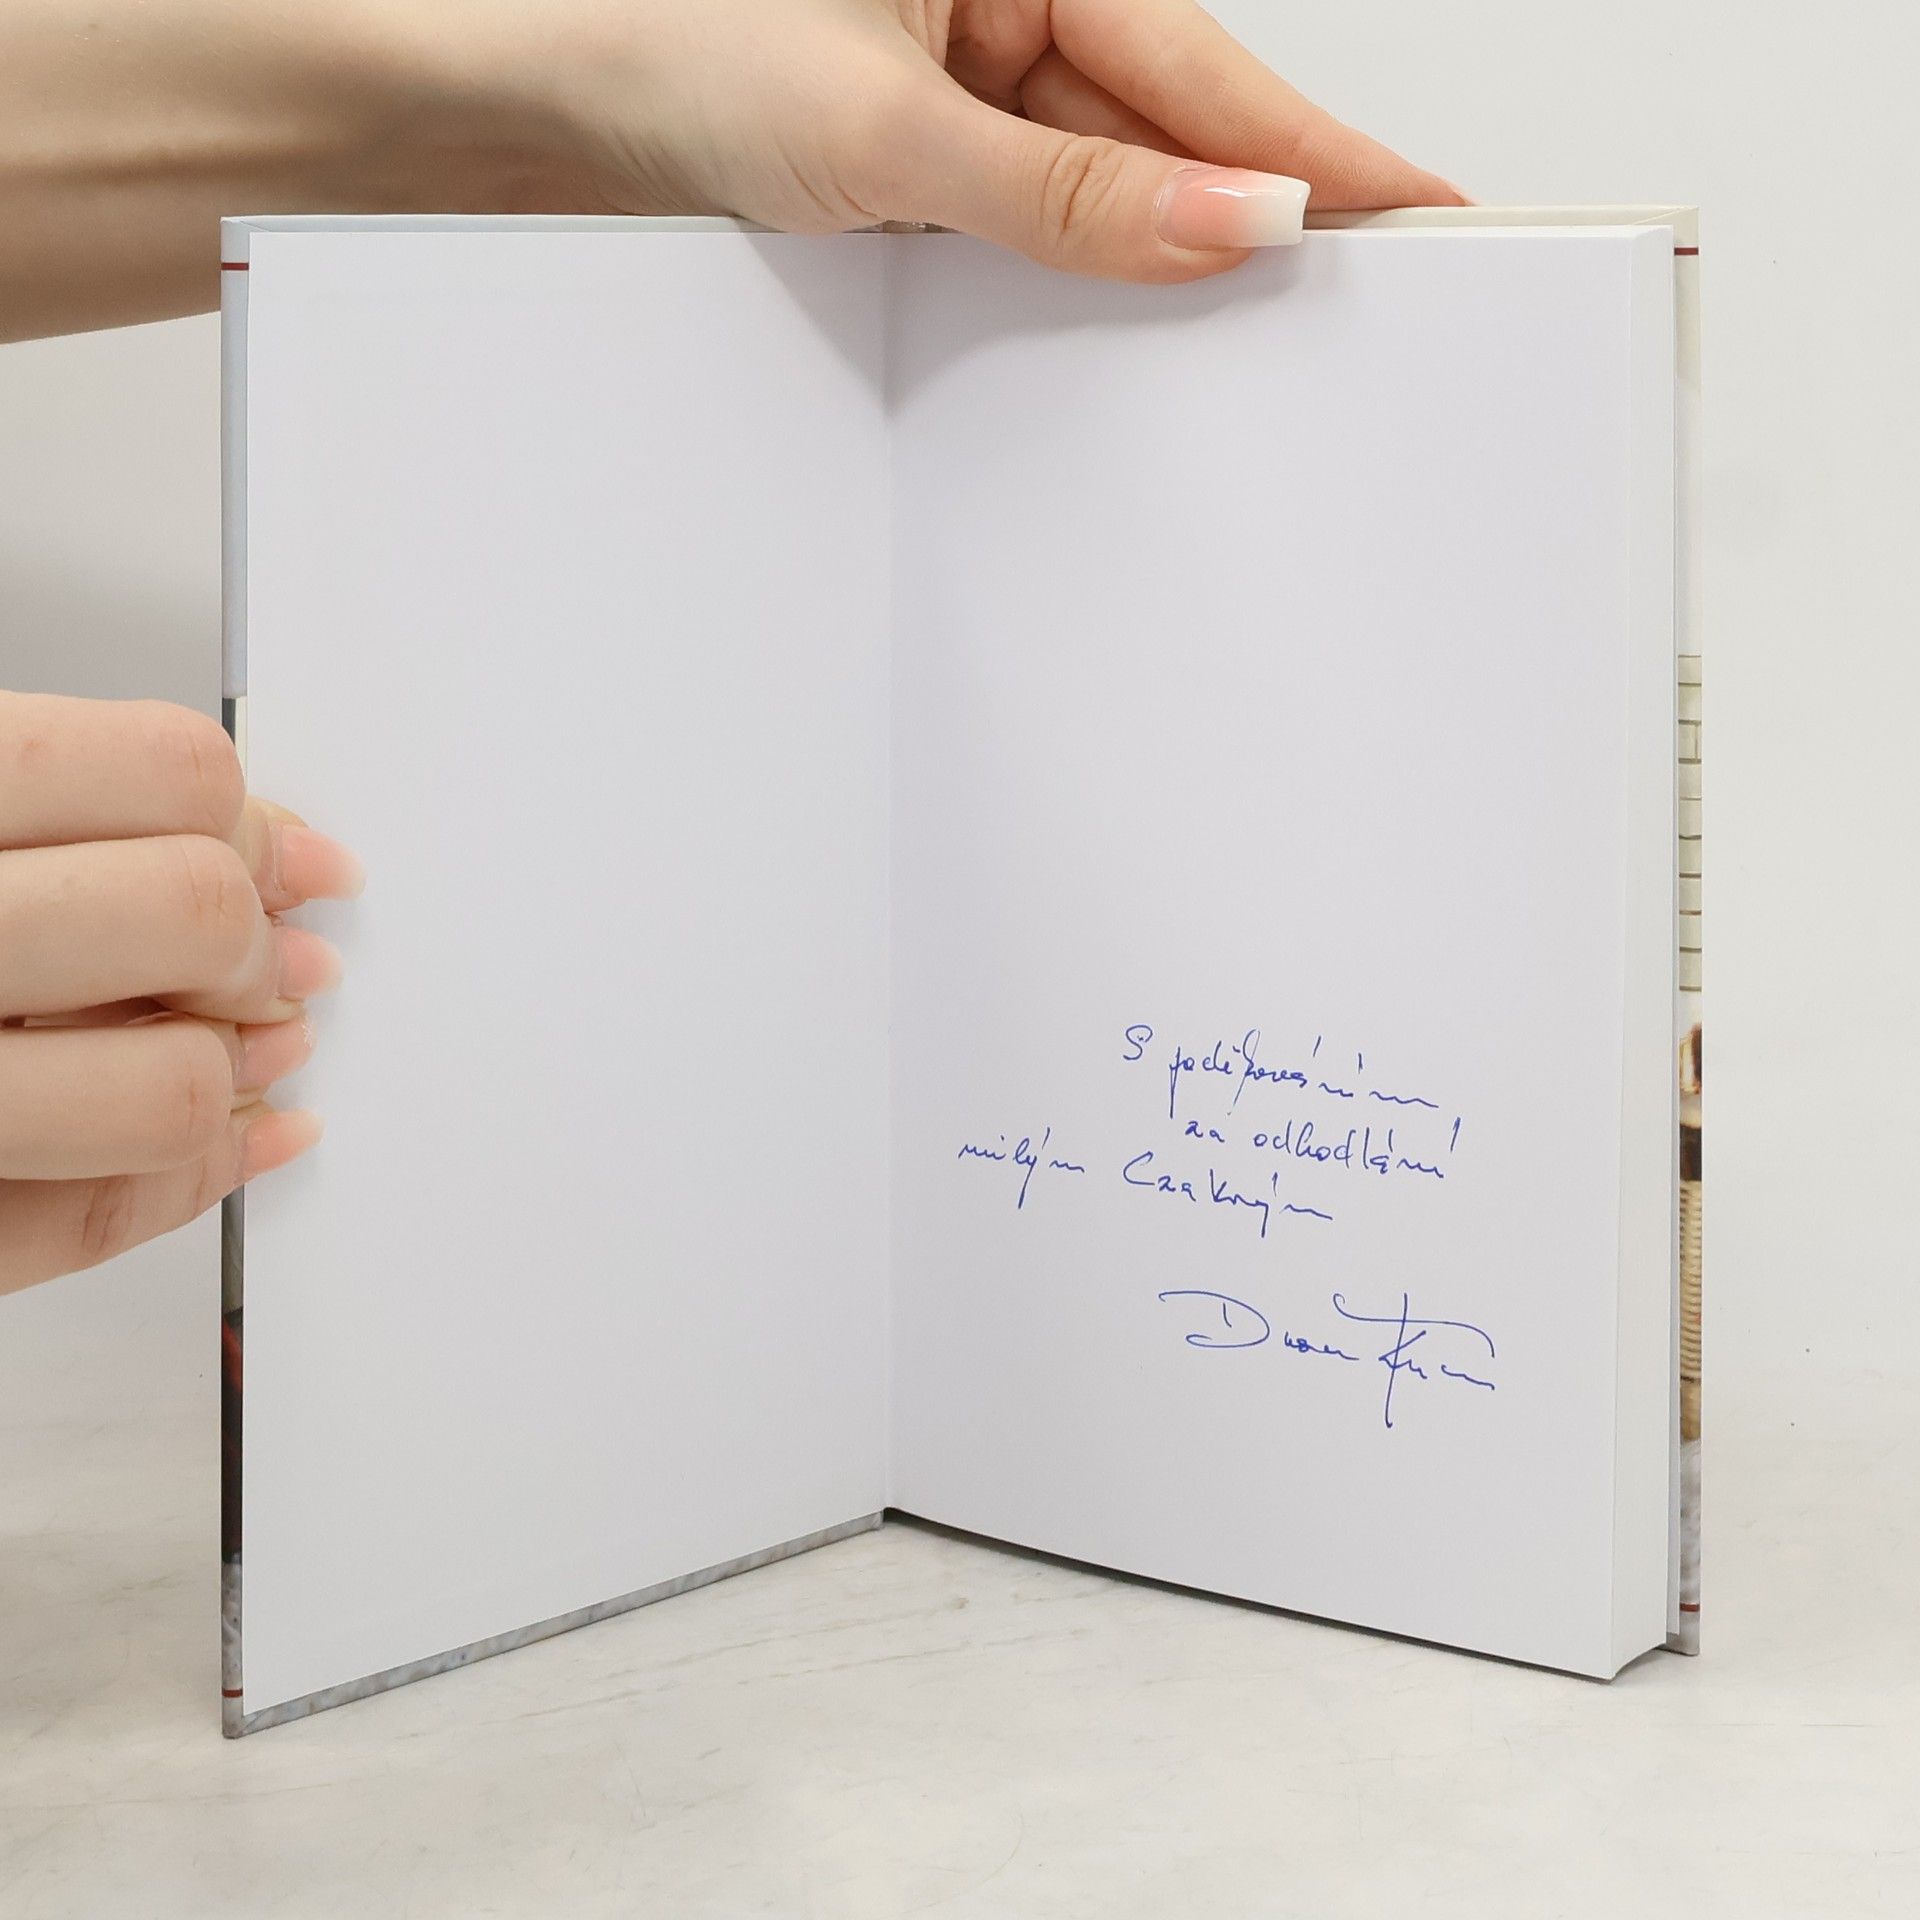 S poděkováním
za odhodlání
milým Czakovým
Dušan